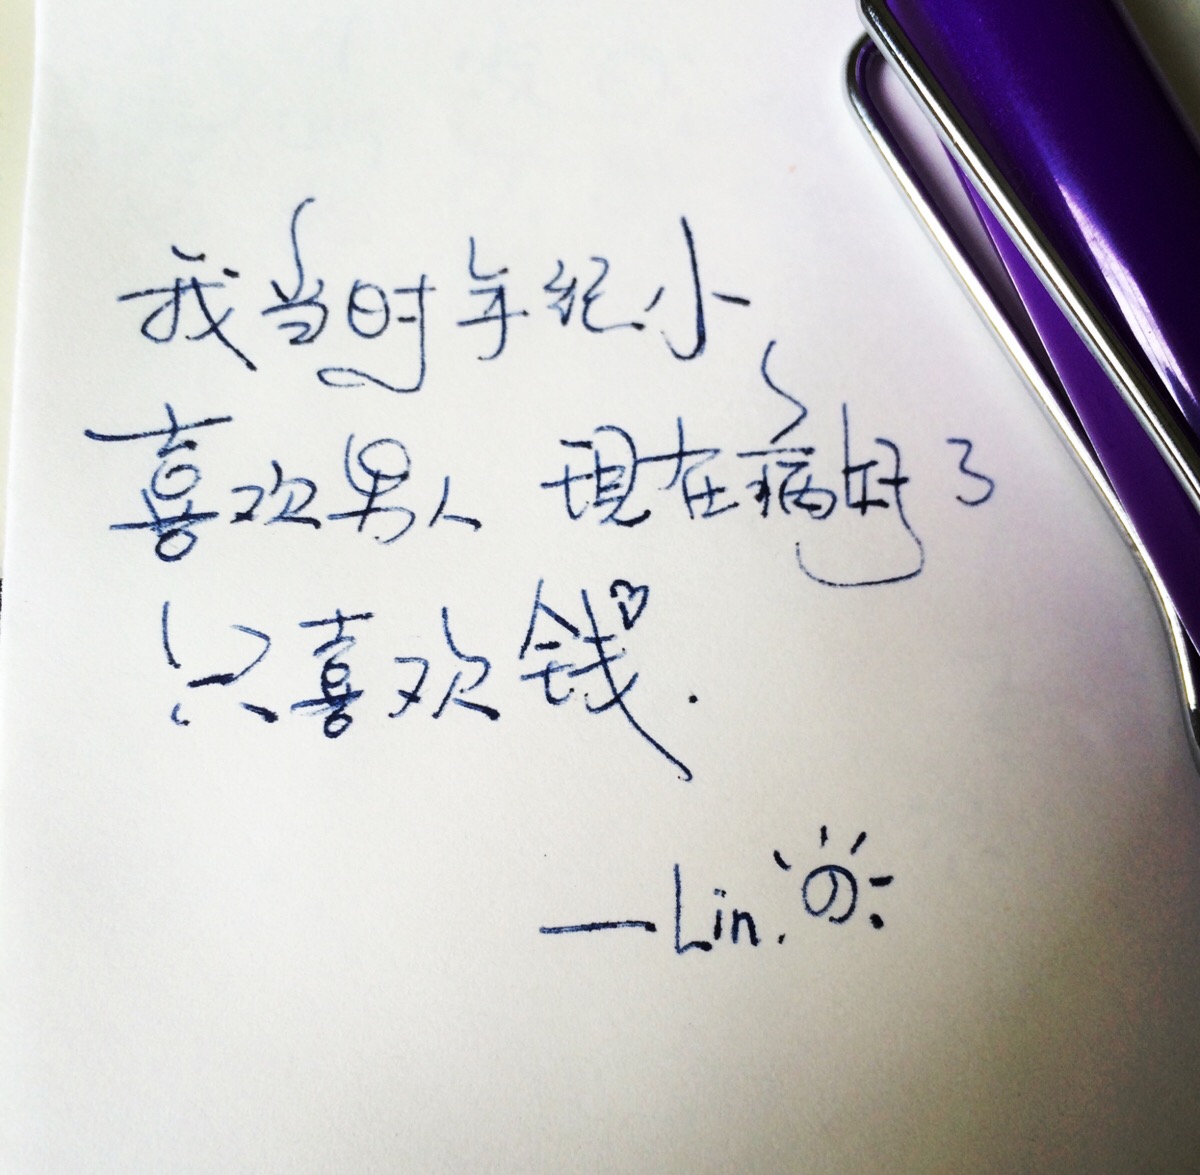 我当时年纪小
喜欢男人 现在病好了
只喜欢钱.
—Lin.